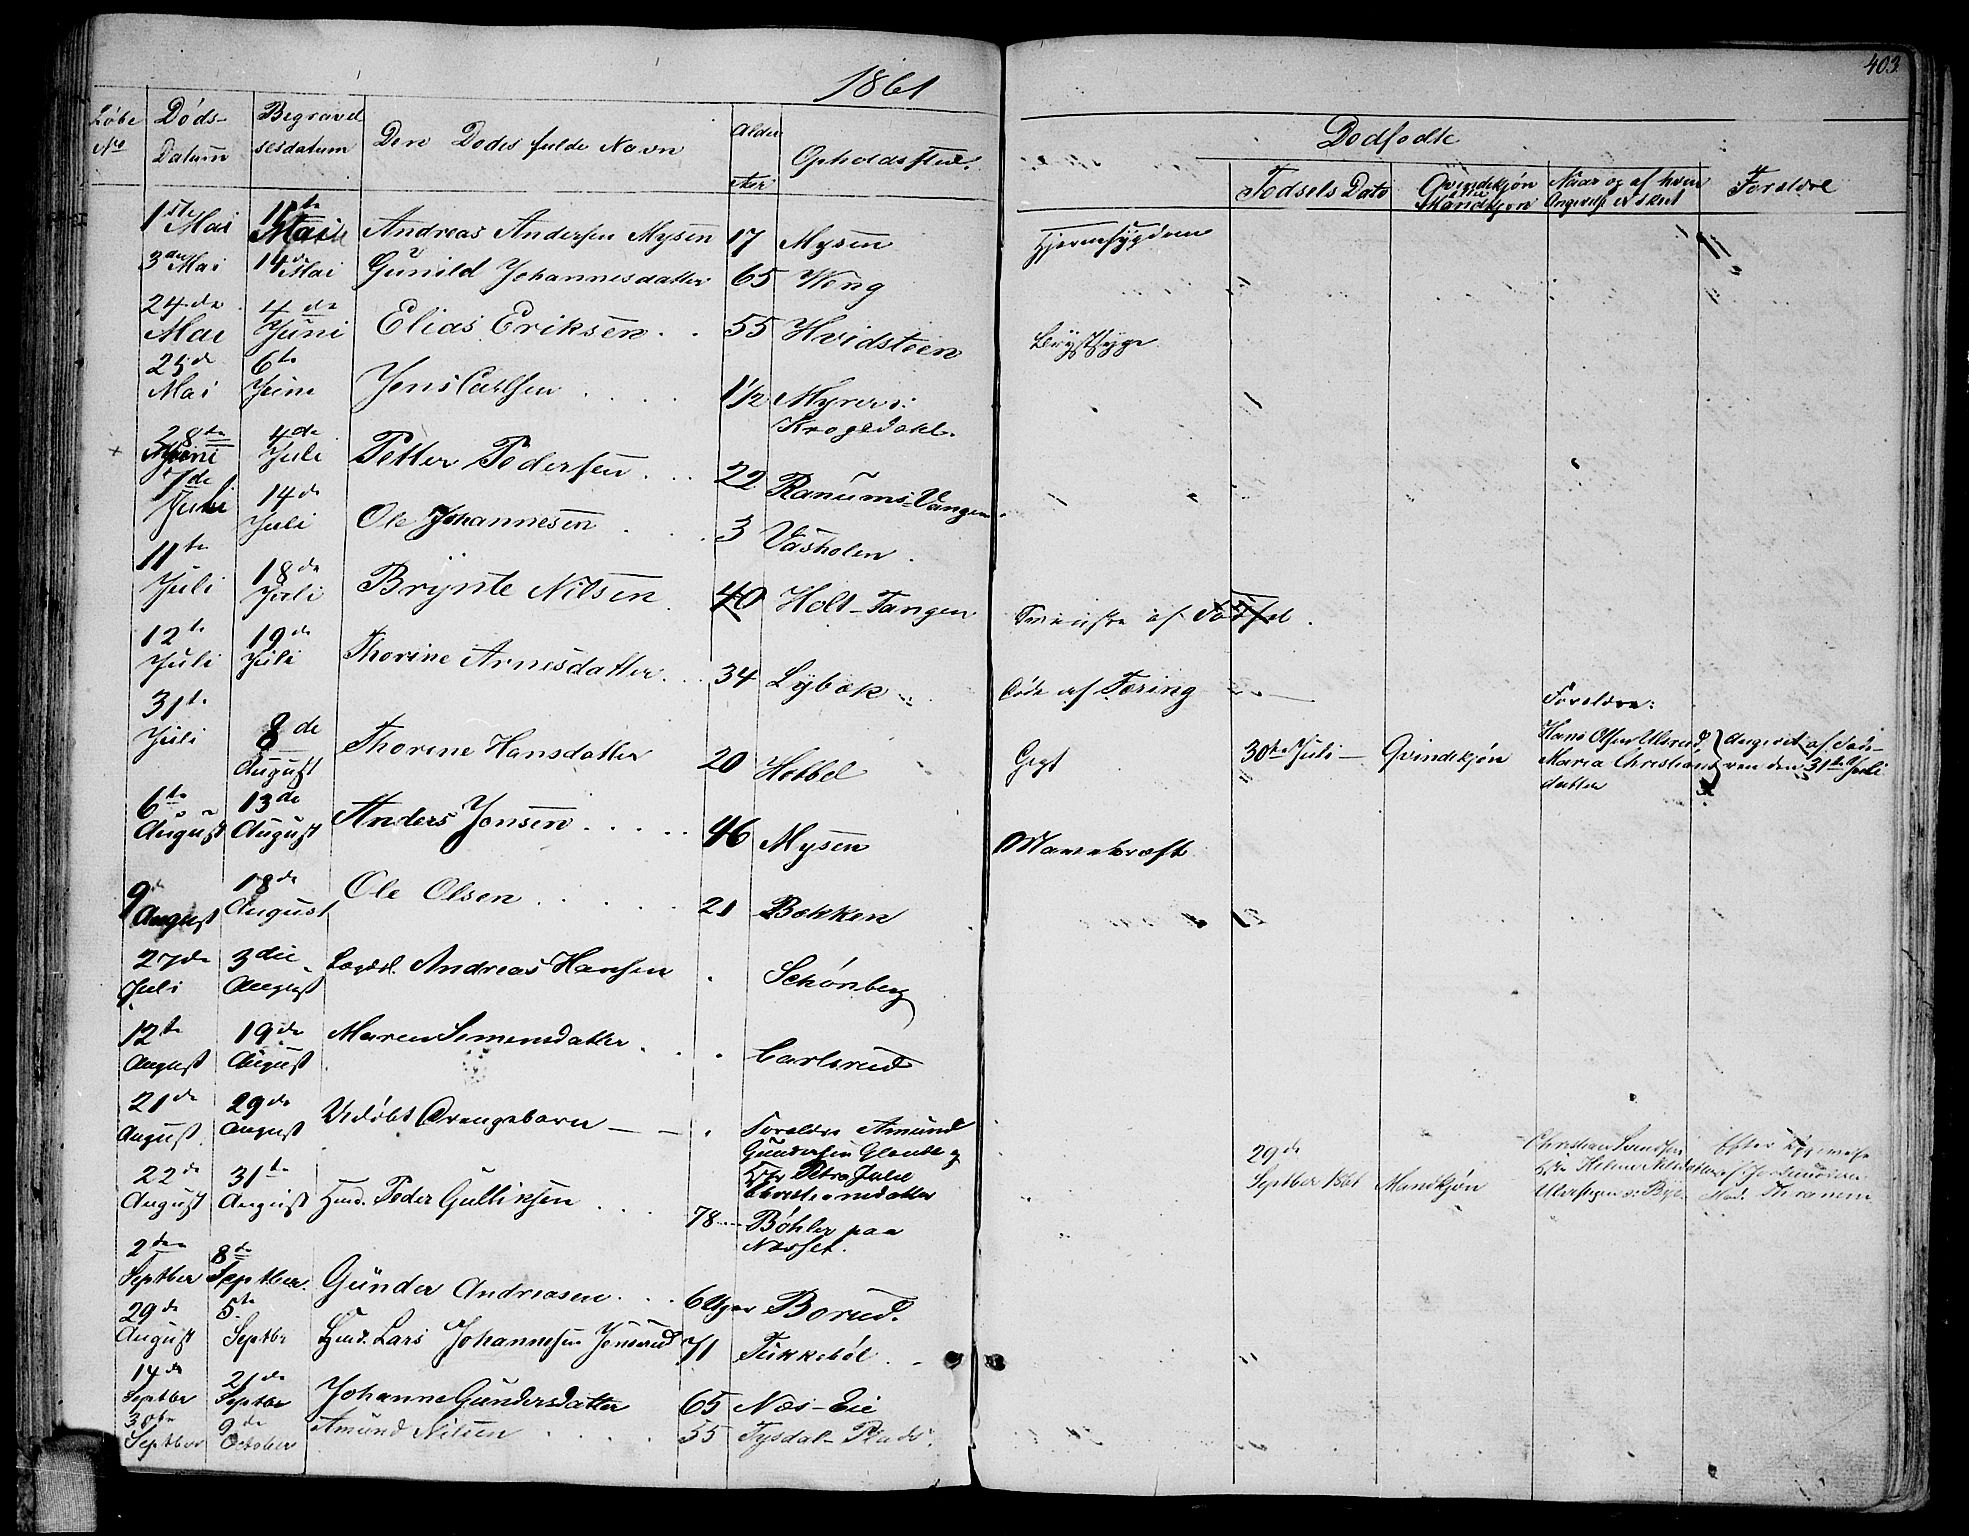 403
1861
Løbe No
Døds-Datum
Begravelsesdatum
Den Dødes fulde Navn
Alder
Opholdssted.
Dødfødte
Fødsels Dato
Qvindekjøn Mandkjøn
Naar og af hvem Angivelse er skeet
Forældre
1ste Mai Mai Andreas Andersen Mysen 17 Mysen Hjernesygdom
3die Mai 14de Mai Gunild Johannesdatter 65 Weng
24de Mai 4de Juni Elias Eriksen 55 Hvidsteen Brystsyge
25de Mai 6te Juni Jens Carlsen 1 1/2 Myren i Krogedahl.
28te Juni 4de Juli Petter Pedersen 22 Ranums-Vangen.
7de Juli 14de Juli Ole Johannesen 3 Vasholen.
11te Juli 18de Juli Brynte Nilsen 40 Holt-Tangen
12te Juli 19de Juli Thorine Arnesdatter 34 Lybæk Døde af Tæring
af Fødsel.
31te Juli 8de August Thorine Hansdatter 20 Hobbel Gigt
30te Juli Qvindekjøn
Forældre:
Hans Olsen Ulsrud
Maria Christians
datter
Angivet af Fade-
ren den 31te Juli
6te August 13de August Anders Jensen 46 Mysen
9de August 18de August Ole Olsen 21 Bækken
27de Juli 3die August Lægdl. Andreas Hansen Schønberg
12te August 19de August Maren Simensdatter Carlsrud
21de August 29de August Udøbt Drengebarn
Forældre Amund
Gundersen og
Hstr Petra Julie
Christiansdatter
22de August 31te August Husmd. Peder Gulliksen 78 Bøhler paa Næsset.
29de
Septber 1861 Mandkjøn
Christian Svendsen
Efter Opgivelse
af Jordmoderen
Mad. Thranem
2den Septber 8de Septber. Gunder Andreasen 6 Uger Borud.
29de August 5te Septbr Husmd. Lars Johannesen Jonsrud 71 Tukkebøl.
14de Septber 21de Septbr Johanne Gundersdatter 65 Næs-Eie
30te Septber 9de October Amund Nilsen 55 Tysdal-Plads.